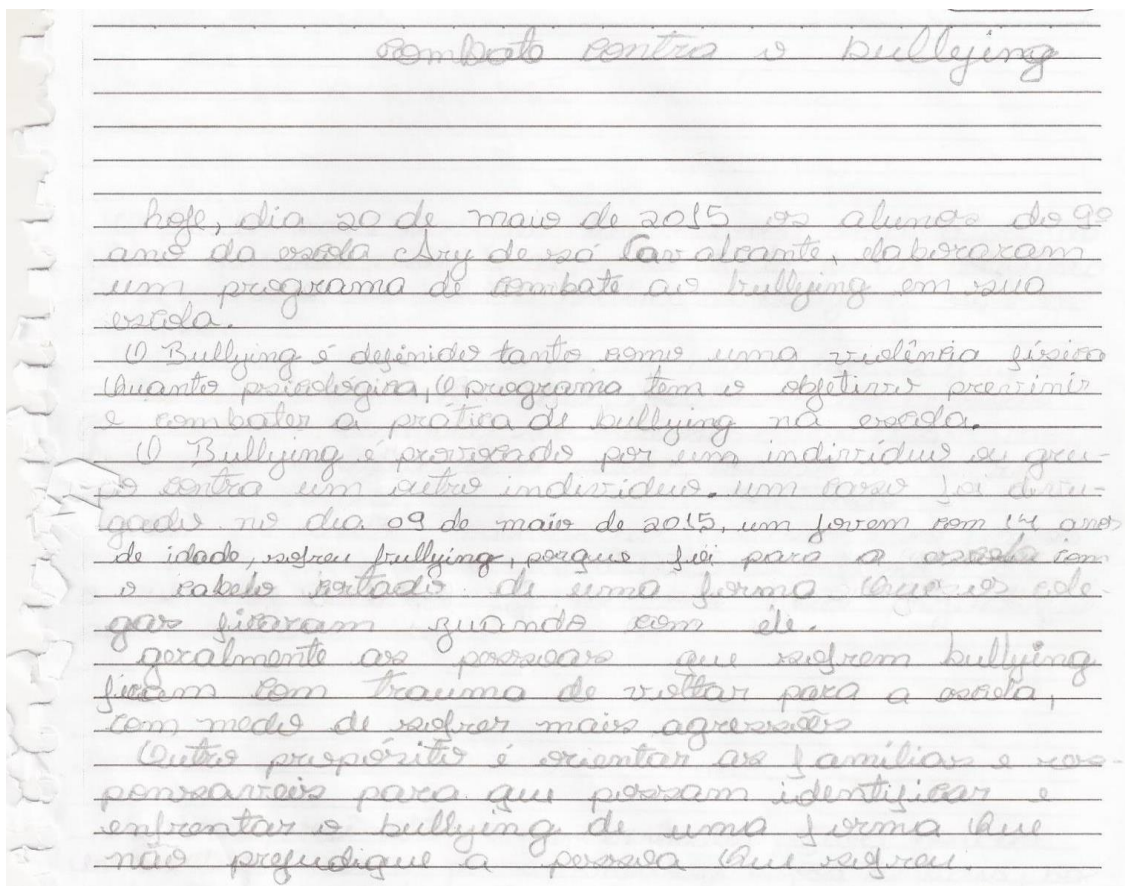 combate contra o bullying
hoje, dia 20 de maio de 2015 os alunos do 9º
ano da escola Ary de sá Cavalcante, elaboraram
um programa de combate ao bullying em sua
escola.
O Bullying é definido tanto como uma violência física
Quanto psicologica, O programa tem o objetivo prevenir
e combater a prática de bullying na escola.
O Bullying e provocado por um individuo ou gru-
po contra um outro individuo. um caso foi divu-
gado no dia 09 de maio de 2015, um jovem com 14 anos
de idade, sofreu bullying, porque foi para a escola com
o cabelo cortado de uma forma Que os cole-
gas ficaram zuando com ele.
geralmente as pessoas que sofrem bullying
ficam com trauma de voltar para a escola,
com medo de sofrer mais agressões
Outro propósito é orientar as famílias e res-
ponsaveis para que possam identificar e
enfrentar o bullying de uma forma Que
não prejudique a pessoa Que sofreu.